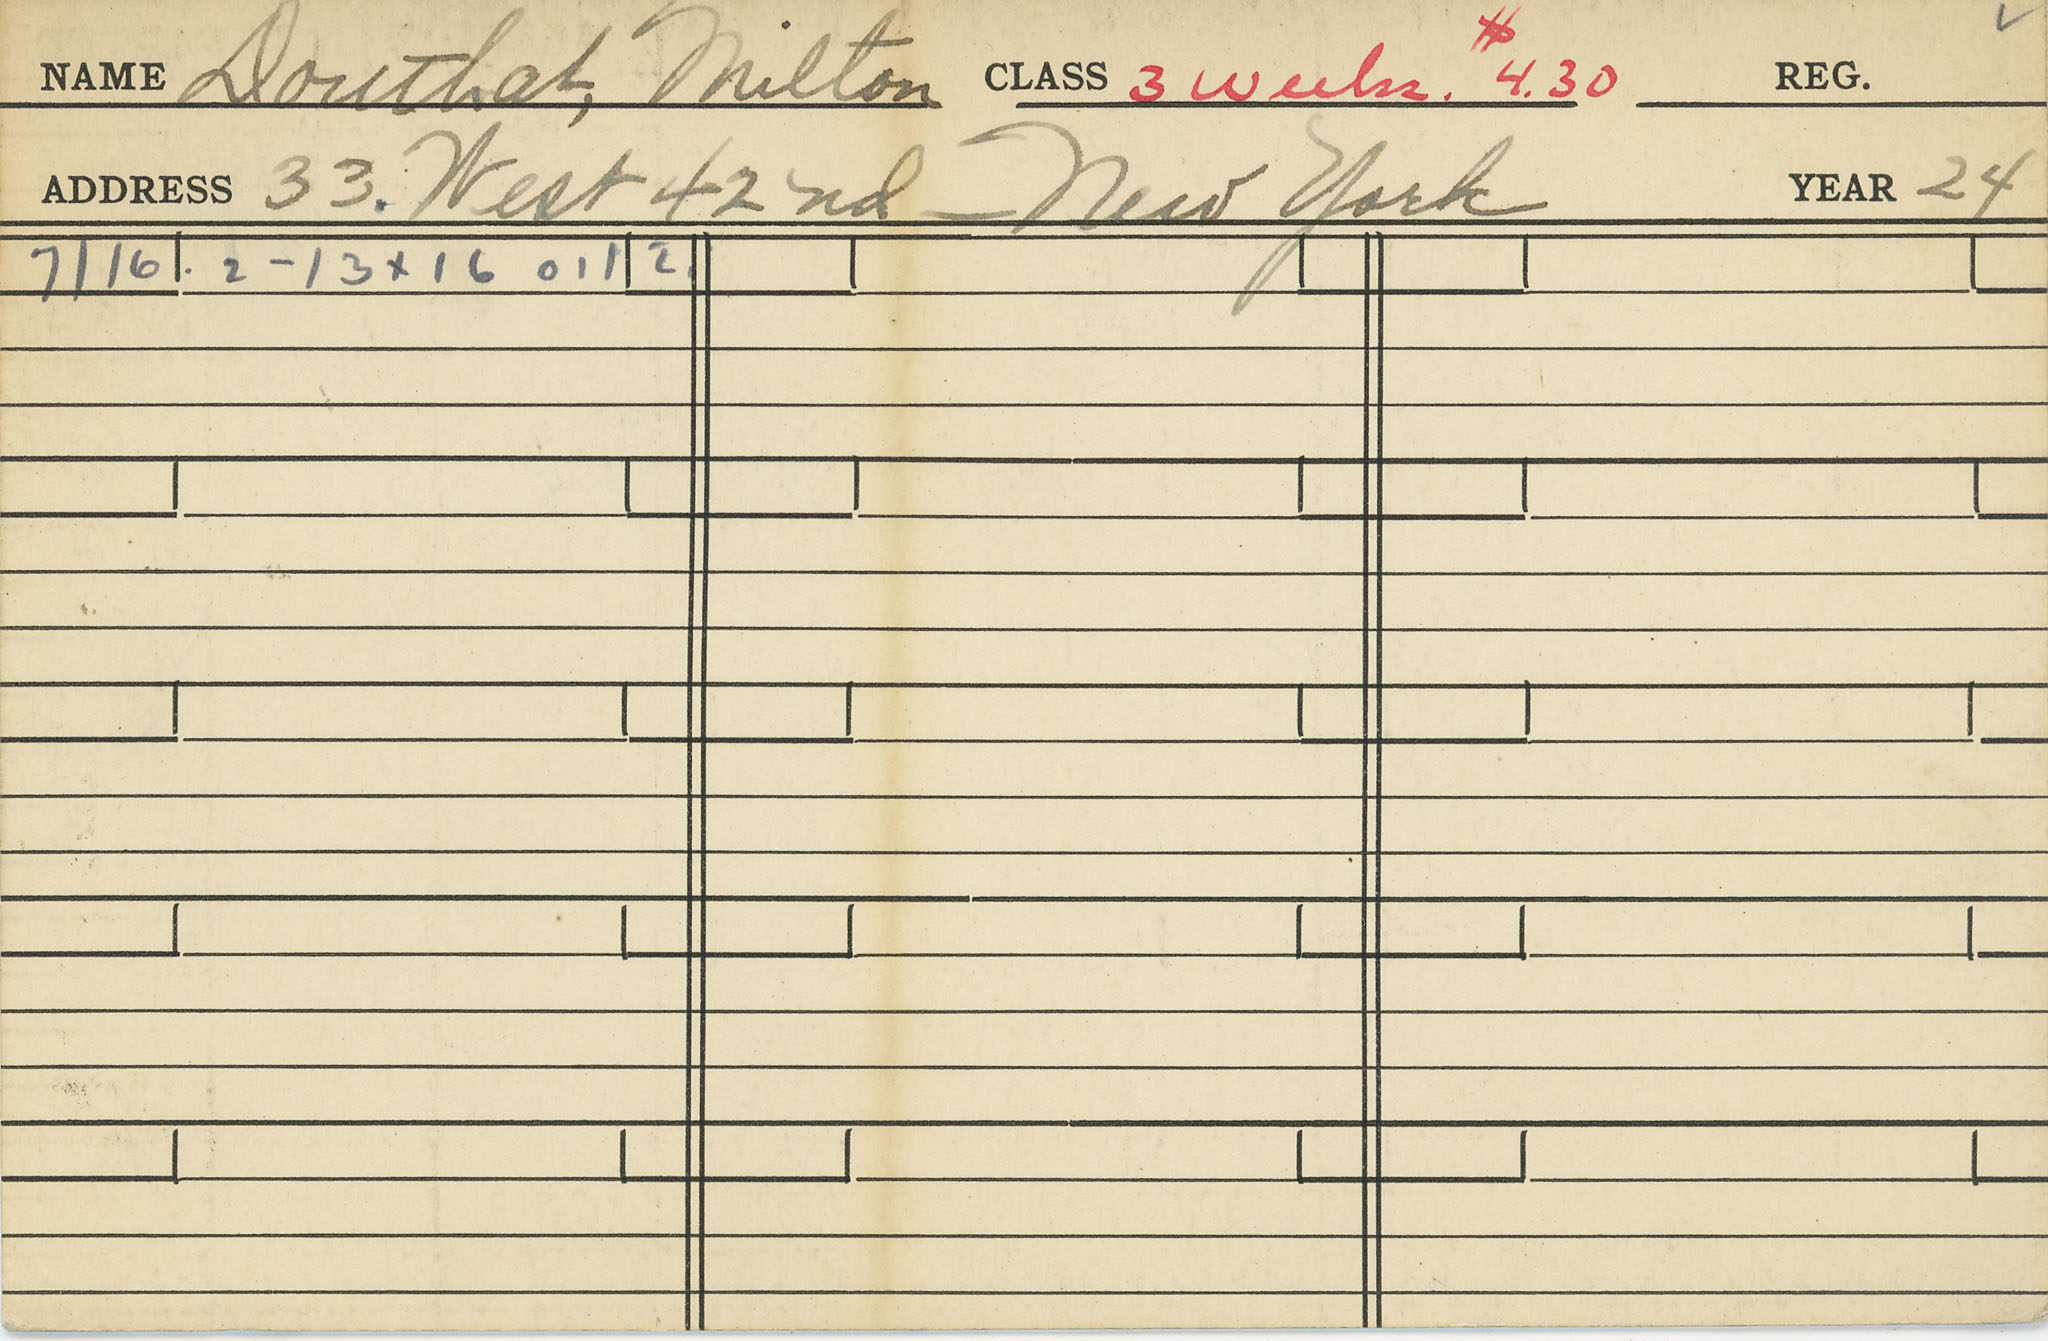 NAME Douthat, Milton CLASS 3 Weeks. $4.30 REG.
ADDRESS 33. West 42nd - New York YEAR 24
7/16 2-13x16 oil 2.